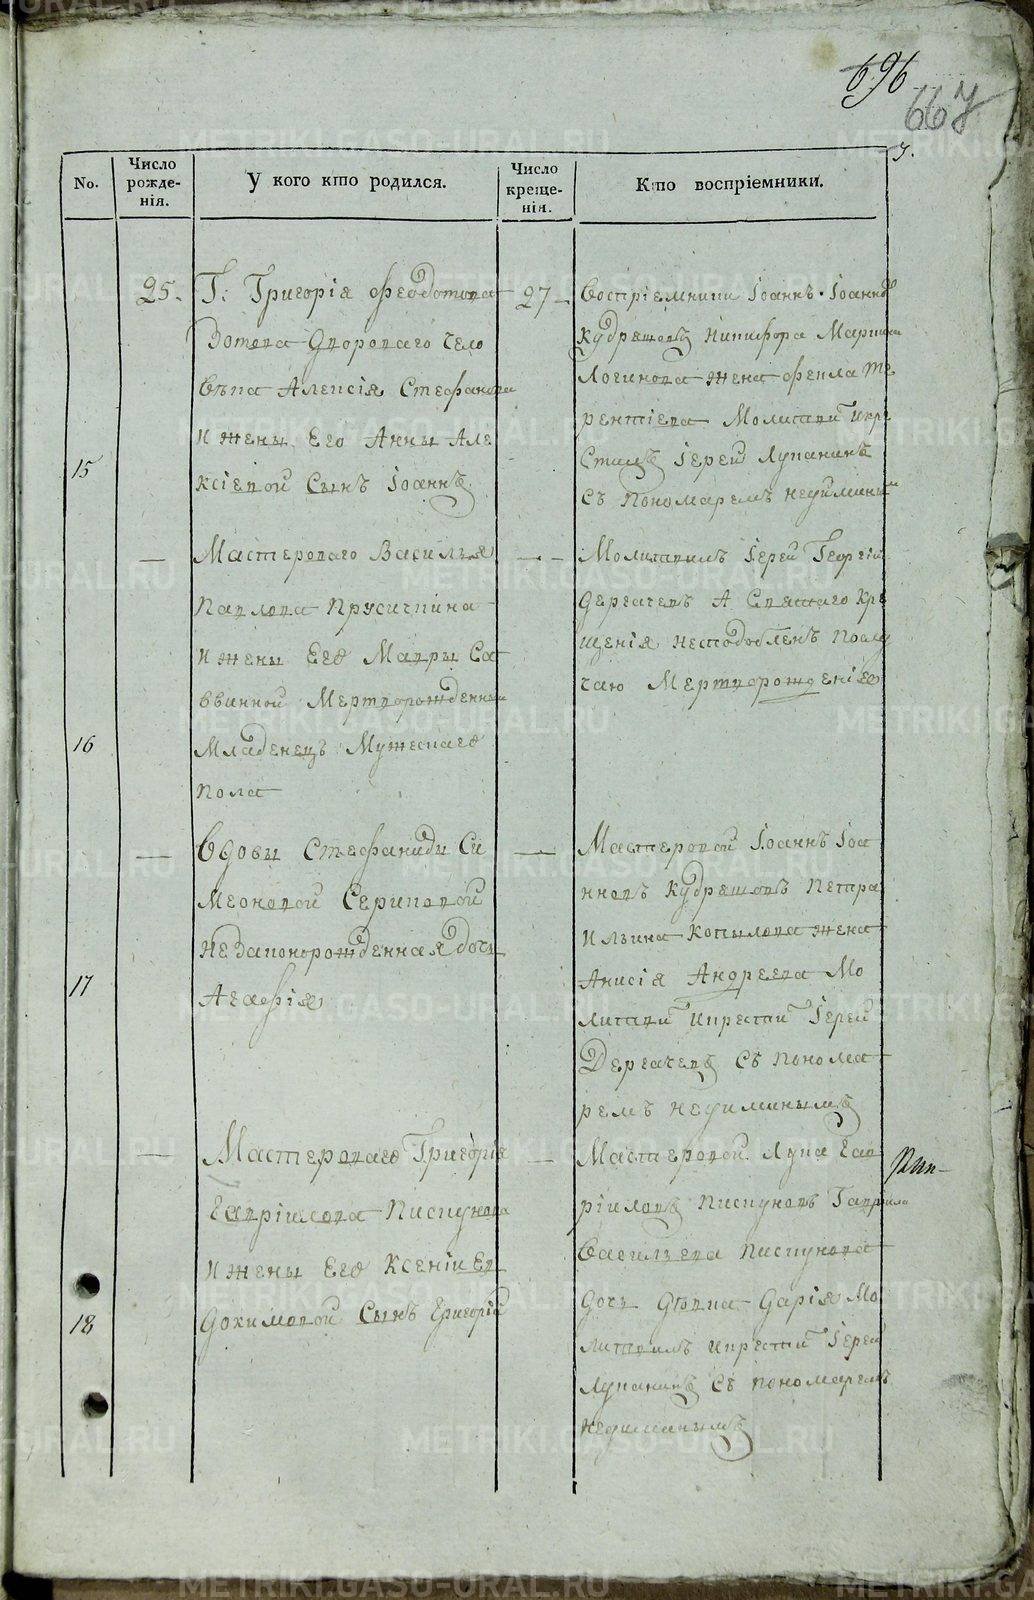 696
667
No.
Число рожде-нія.
У кого кто родился.
Число креще-нія.
Кто воспріемники.
15
25.
Г: Григорія Феодотова
Зотова Дворового чело
вѣка Алексія Стефанова
и жены Его Анны Але
ксіевой Сынъ Іоаннъ
27
Воспріемники Іоаннъ Іоаннов
Кудряшовъ Никифора
Логинова жена Фекла Те
рентіева Молитвил и кре
стилъ Іерей Лупанинъ
съ пономаремъ Недиминым
16
—
Мастероваго Василья
Павлова Прусичкина
и жены Его Мавры Са
ввиной Мертворожденный
Младенецъ Мужескаго
пола
— -
Молитвилъ Іерей Георгій
Дергачевъ А Святаго Кре
щенія несподобленъ по слу
чаю Мертворожденія
17
—
Вдовы Стефаниды Си
меоновой Сериковой
Незаконорожденная дочь
Агафія
—
Мастеровой Іоаннъ Іоа
нновъ Кудряшовъ Петра
Ильина Копылова жена
Анисія Андреева Мо
литвил и крестил Іерей
Дергачевъ съ понома
ремъ Недиминымъ
18
—
Мастероваго Григорія
Гавріилова Пискунова
и жены Его Ксеніи Ев
докимовой Сынъ Григорій
—
Мастеровой Лука Гав
ріиловъ Пискуновъ Гавріила
Васильева Пискунова
дочь Дѣвка Дарія Мо
литвилъ и крестил Іерей
Лупанинъ съ пономаремъ
Недиминымъ
METRIKI.GASO-URAL.RU